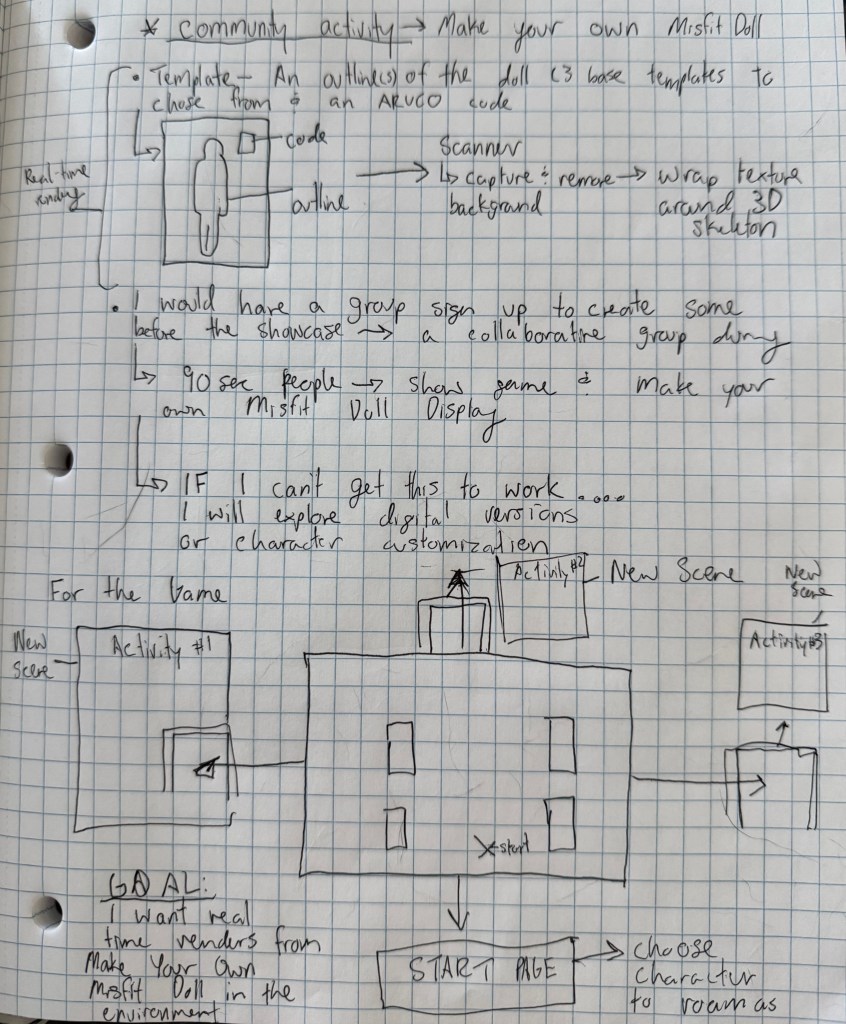 * Community activity → Make your own Misfit Doll
• Template – An outline(s) of the doll (3 base templates to
chose from & an ARUCO code
code
outline
Real-time
Scanner
↳ capture & remove → wrap texture
background around 3D
skeleton
• I would have a group sign up to create some
before the showcase → a collaborative group during
↳ 90 sec people → show game & make your
own Misfit Doll Display
↳ IF I can't get this to work....
I will explore digital versions
or character customization
For the Game
New
Scene
Activity #1
Activity #2
New Scene
New
Scene
Activity #3
X start
GOAL:
I want real
time renders from
Make Your Own
Misfit Doll in the
environment
START PAGE
→ choose
character
to roam as